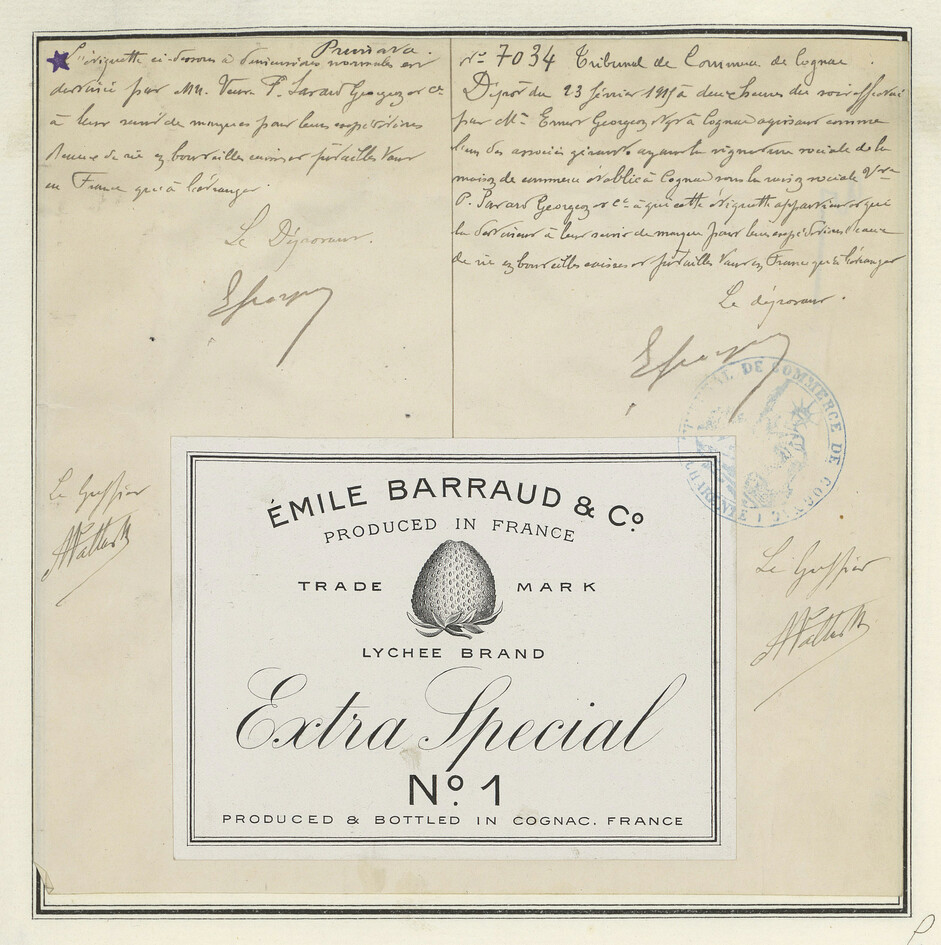 Primava.
L'étiquette ci-dessous à dimensions normales est
destinée par MM. Veuve P. Savard Georgeon & Cie
à leur servir de marques pour leurs expéditions
d'eaux de vie en bouteilles caisses et futailles tant
en France qu'à l'étranger.
Le Déposant.
Le Greffier
No 7034 Tribunal de Commerce de Cognac.
Dépôt du 23 février à deux heures du soir effectué
par Mr. Ernest Georgeon Ngt à Cognac agissant comme
l'un des associés gérants ayant la signature sociale de la
maison de commerce établie à Cognac sous la raison sociale Vve
P. Savard Georgeon & Cie à qui cette étiquette appartient et qui
la destinent à leur servir de marque pour leurs expéditions d'eaux
de vie en bouteilles caisses et futailles tant en France qu'à l'étranger
Le déposant.
TRIBUNAL DE COMMERCE DE COGNAC
CHARENTE
Le Greffier
ÉMILE BARRAUD & Co.
PRODUCED IN FRANCE
TRADE MARK
LYCHEE BRAND
Extra Special
No. 1
PRODUCED & BOTTLED IN COGNAC. FRANCE